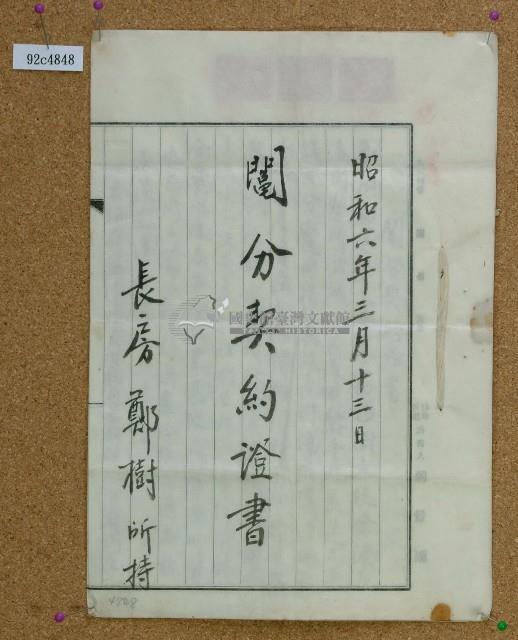 92c4848
昭和六年三月十三日
鬮分契約證書
長房鄭樹所持
國史館臺灣文獻館
TAIWAN HISTORICA
4848